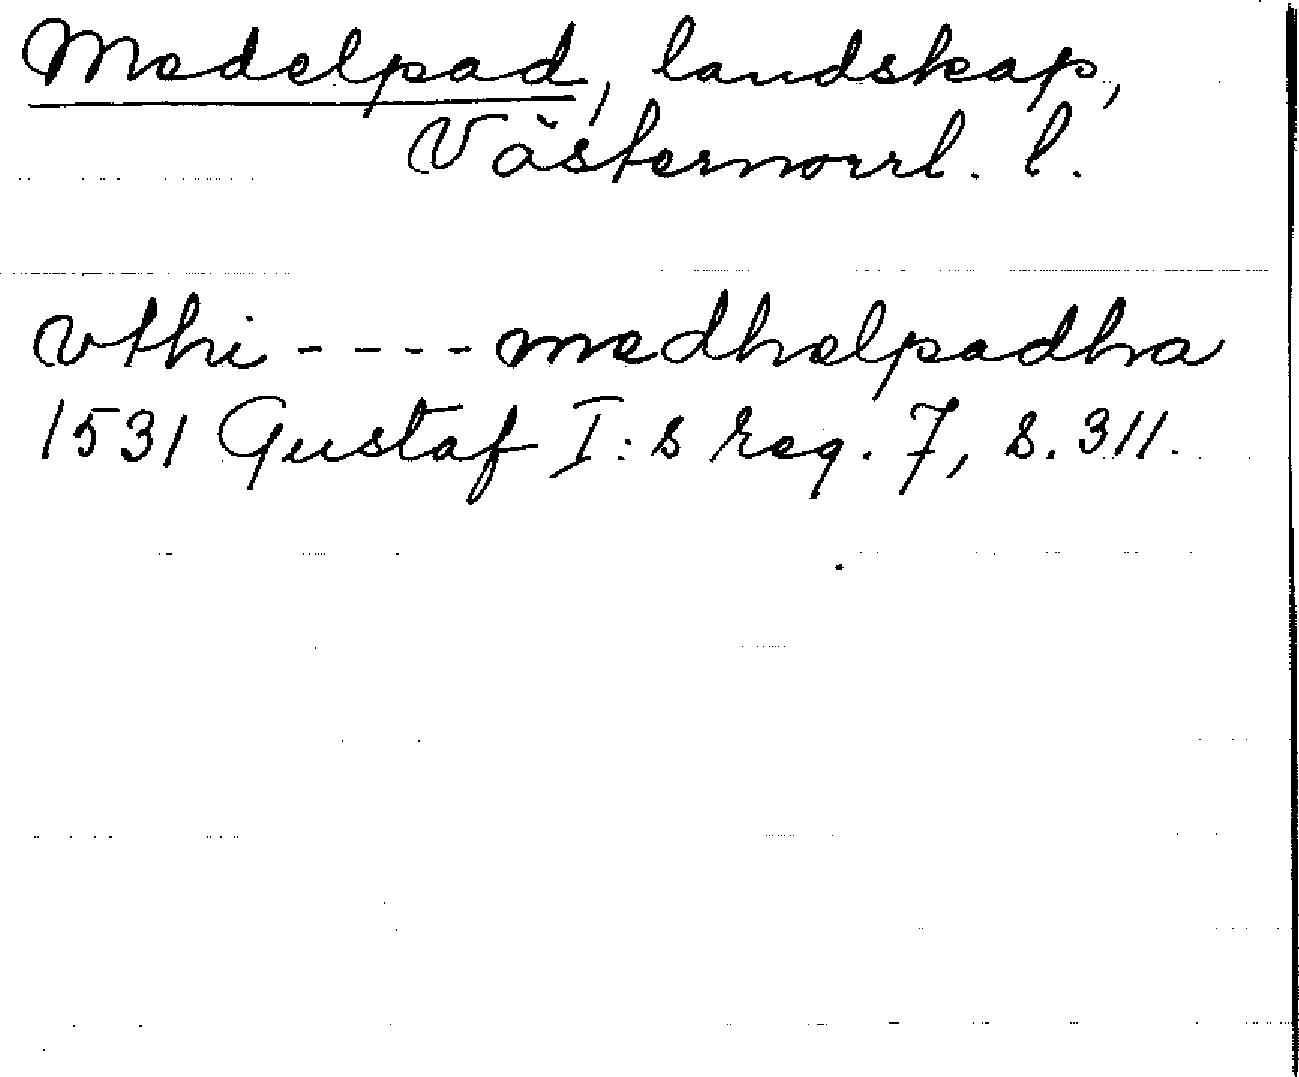 Medelpad, landskap,
Västernorrl. l.
vthi - - - - medhelpadha
1531 Gustaf I:s reg. 7, s. 311.